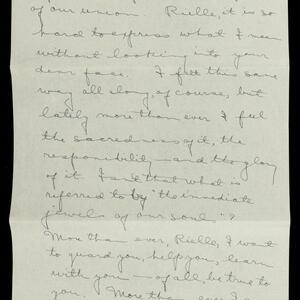 of our union Rielle, it is so
hard to express what I mean
without looking into your
dear face. I felt this same
way all along, of course, but
lately more than ever I feel
the sacredness of it, the
responsibility - and the glory
of it. Isn't that what is
referred to by "the immediate
jewels of our souls"?
More than ever, Rielle, I want
to guard you, help you, learn
with you - of all, be true to
you. More than ever